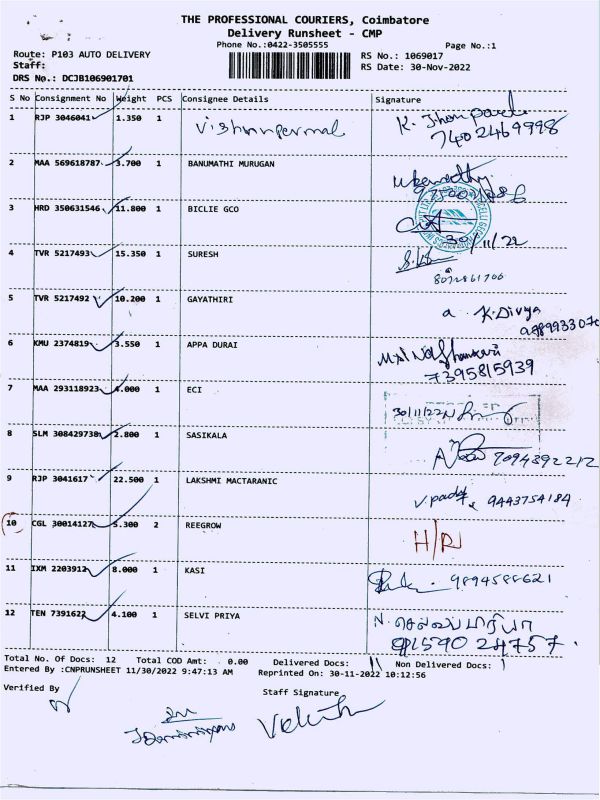 THE PROFESSIONAL COURIERS, Coimbatore
Delivery Runsheet - CMP
Phone No.:0422-3505555 Page No.:1
Route: P103 AUTO DELIVERY RS No.: 1069017
Staff: RS Date: 30-Nov-2022
DRS No.: DCJB106901701
S No Consignment No Weight PCS Consignee Details Signature
1 RJP 3046041 1.350 1 Vishnuperumal K. Jhon
7402469998
2 MAA 569618787 3.700 1 BANUMATHI MURUGAN
3 HRD 350631546 11.800 1 BICLIE GCO
30/11/22
4 TVR 5217493 15.350 1 SURESH
5 TVR 5217492 10.200 1 GAYATHIRI K.Divya
6 KMU 2374819 3.550 1 APPA DURAI
7395815939
7 MAA 293118923 4.000 1 ECI
30/11/22
8 SLM 308429738 2.800 1 SASIKALA
9094392212
9 RJP 3041617 22.500 1 LAKSHMI MACTARANIC
9443754184
10 CGL 30014127 5.300 2 REEGROW H/R
11 IXM 2203912 8.000 1 KASI 9894588621
12 TEN 7391622 4.100 1 SELVI PRIYA N. செல்வபிரியா
9159024757
Total No. Of Docs: 12 Total COD Amt: 0.00 Delivered Docs: 11 Non Delivered Docs: 1
Entered By :CNPRUNSHEET 11/30/2022 9:47:13 AM Reprinted On: 30-11-2022 10:12:56
Verified By Staff Signature